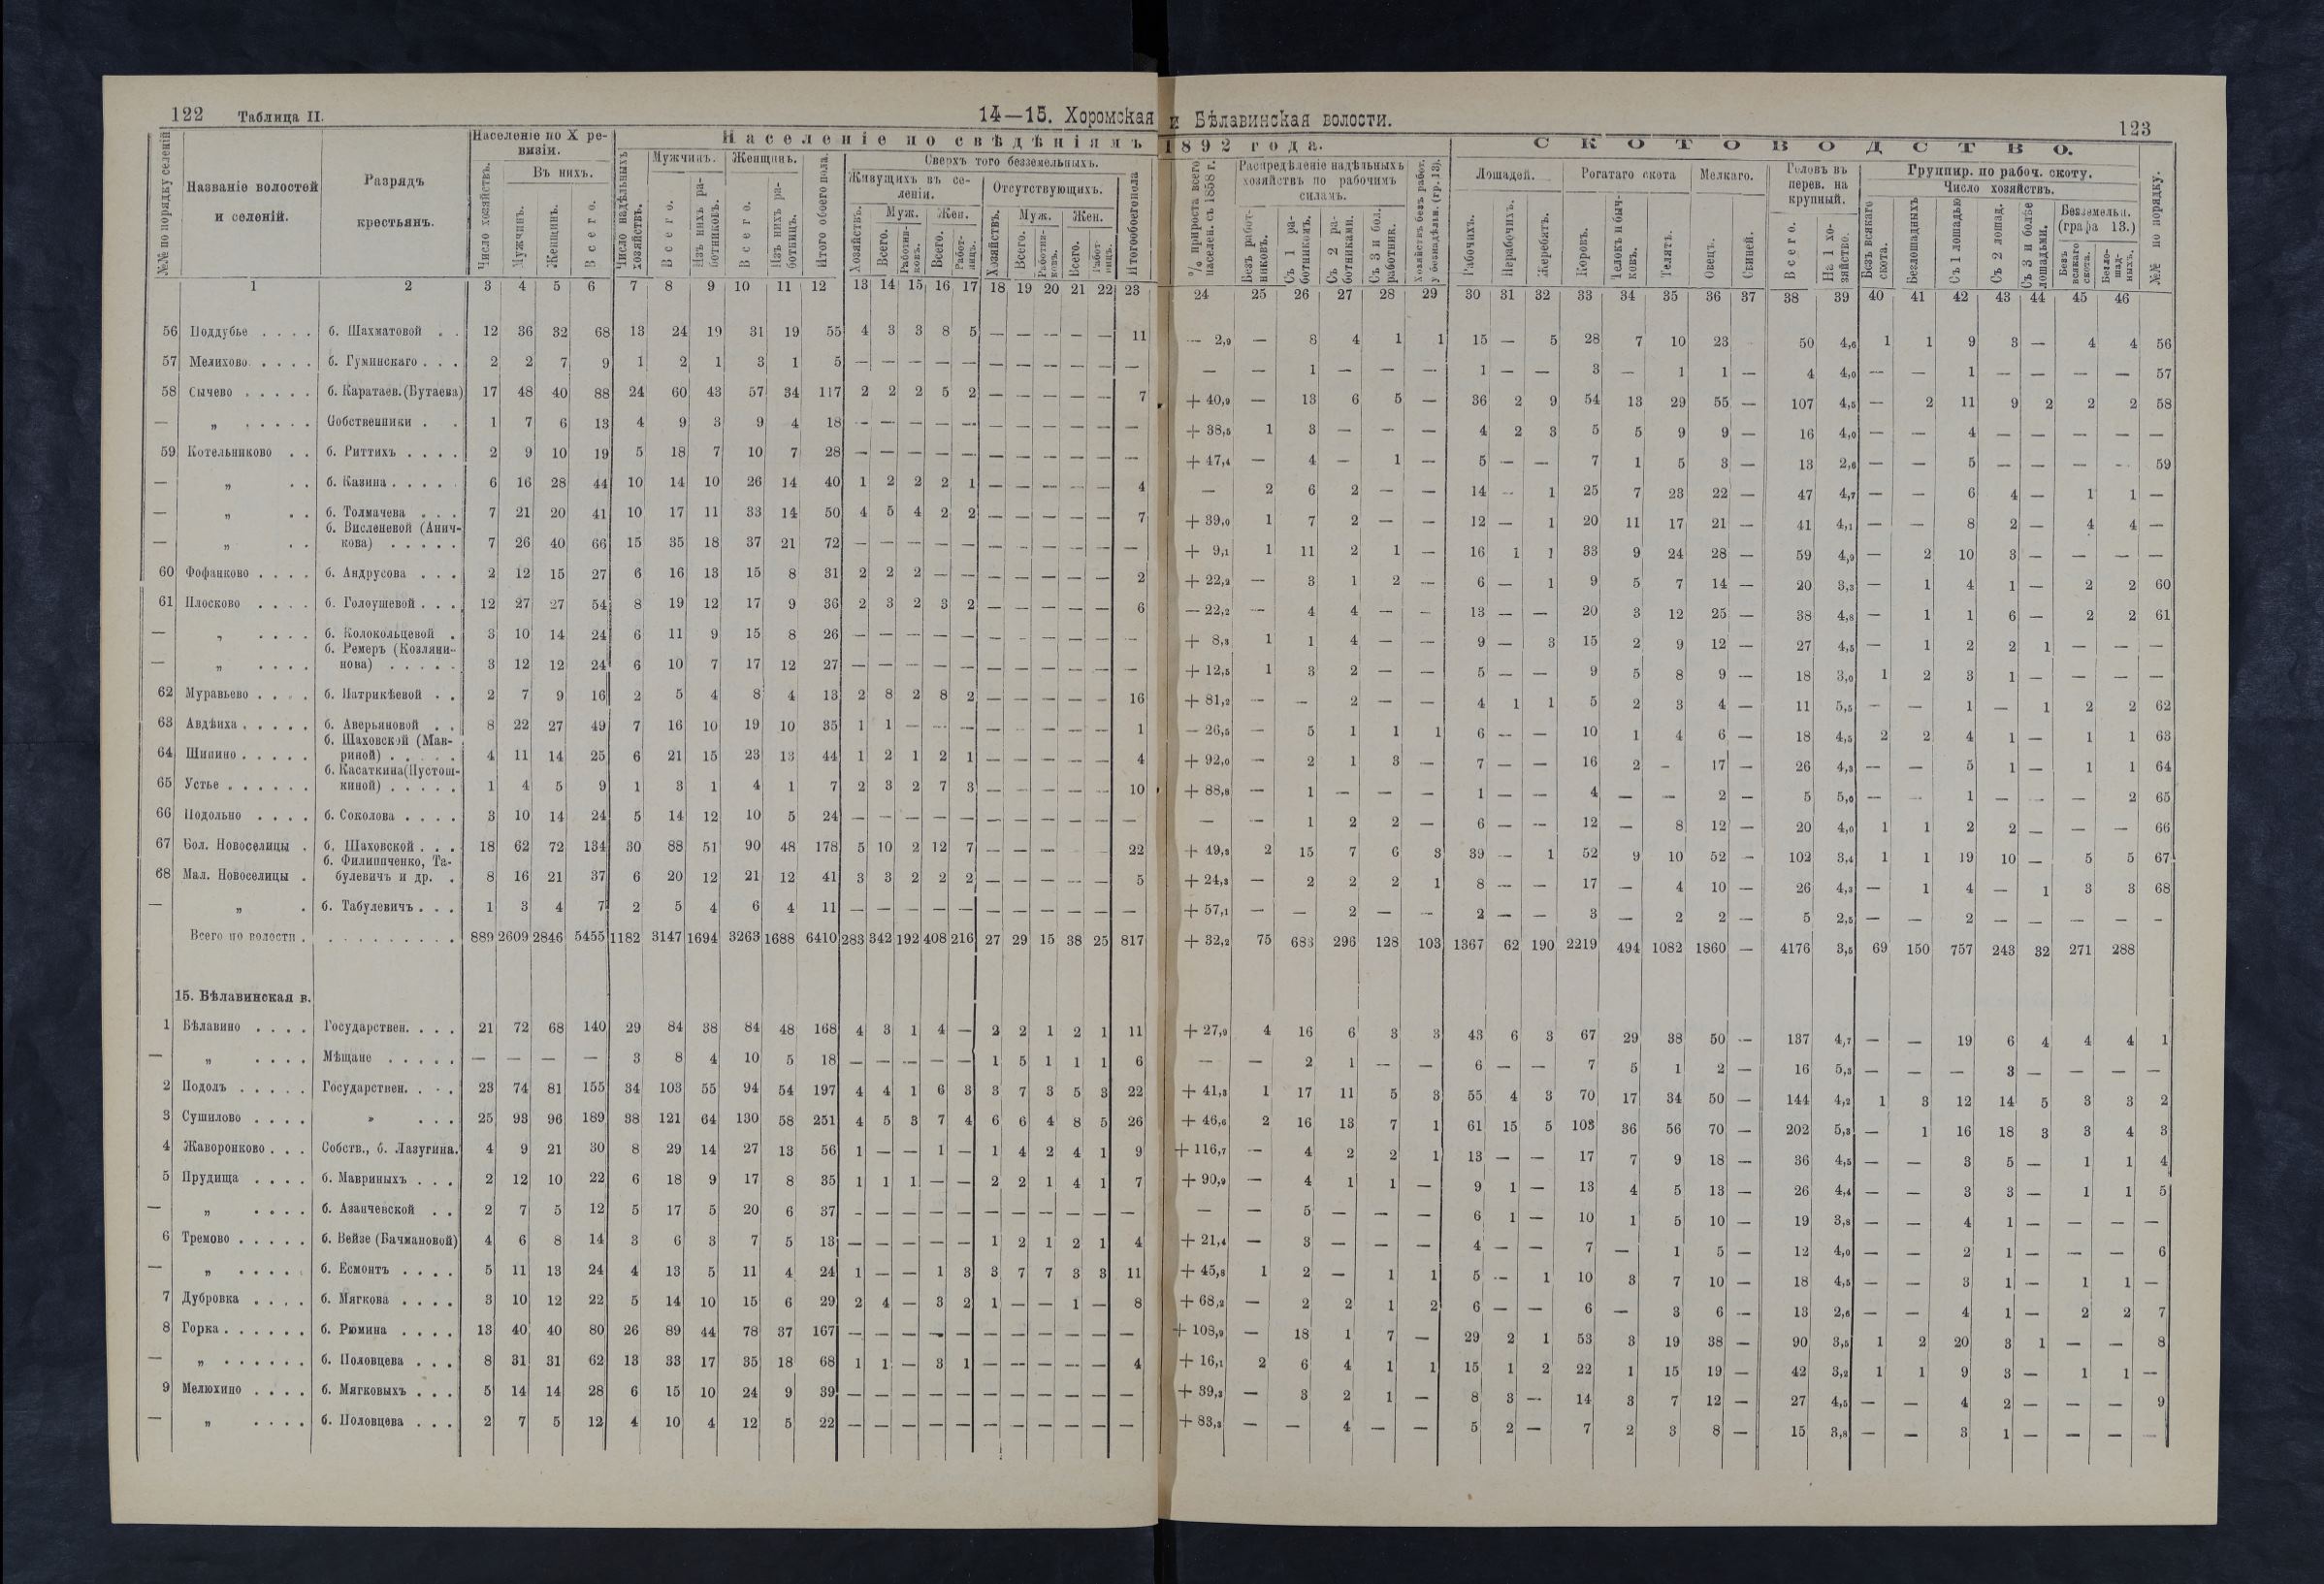 122 Таблица II.
14—15. Хоромская и Бѣлавинская волости.
123
№№ по порядку селеній
Названіе волостей и селеній.
Разрядъ крестьянъ.
Населеніе по X ревизіи.
Число хозяйствъ.
Въ нихъ.
Мужчинъ.
Женщинъ.
Всего.
Населеніе по свѣдѣніямъ 1892 года.
Число надѣльныхъ хозяйствъ.
Мужчинъ.
Всего.
Изъ нихъ работниковъ.
Женщинъ.
Всего.
Изъ нихъ работницъ.
Итого обоего пола.
Сверхъ того безземельныхъ.
Живущихъ въ селеніи.
Отсутствующихъ.
Хозяйствъ.
Муж.
Жен.
Всего.
Работниковъ.
Всего.
Работницъ.
Итого обоего пола
% прироста всего населен. съ 1858 г.
Распредѣленіе надѣльныхъ хозяйствъ по рабочимъ силамъ.
Безъ работниковъ.
Съ 1 работникомъ.
Съ 2 работниками.
Съ 3 и бол. работник.
Хозяйствъ безъ работ. у безнадѣльн. (гр. 13).
СКОТОВОДСТВО.
Лошадей.
Рабочихъ.
Нерабочихъ.
Жеребятъ.
Рогатаго скота
Коровъ.
Телокъ и бычковъ.
Телятъ.
Мелкаго.
Овецъ.
Свиней.
Головъ въ перев. на крупный.
Всего.
На 1 хозяйство.
Группир. по рабоч. скоту.
Число хозяйствъ.
Безъ всякаго скота.
Безлошадныхъ
Съ 1 лошадью
Съ 2 лошад.
Съ 3 и болѣе лошадьми.
Безземельн. (графа 13.)
Безъ всякаго скота.
Безлошадныхъ.
№№ по порядку.
1 2 3 4 5 6 7 8 9 10 11 12 13 14 15 16 17 18 19 20 21 22 23 24 25 26 27 28 29 30 31 32 33 34 35 36 37 38 39 40 41 42 43 44 45 46
56 Поддубье . . . . б. Шахматовой . . 12 36 32 68 13 24 19 31 19 55 4 3 3 8 5 — — — — — 11 — 2,9 — 8 4 1 1 15 — 5 28 7 10 23 50 4,6 1 1 9 3 — 4 4 56
57 Мелихово . . . . б. Гуминскаго . . . 2 2 7 9 1 2 1 3 1 5 — — — — — — — — — — — — — 1 — — — 1 — — 3 — 1 1 — 4 4,0 — — 1 — — — — 57
58 Сычево . . . . . б. Каратаев. (Бутаева) 17 48 40 88 24 60 43 57 34 117 2 2 2 5 2 — — — — — 7 + 40,9 — 13 6 5 — 36 2 9 54 13 29 55 — 107 4,5 — 2 11 9 2 2 2 58
— „ . . . . . Собственники . . 1 7 6 13 4 9 3 9 4 18 — — — — — — — — — — — + 38,5 1 3 — — — 4 2 3 5 5 9 9 — 16 4,0 — — 4 — — — — —
59 Котельниково . . б. Риттихъ . . . . 2 9 10 19 5 18 7 10 7 28 — — — — — — — — — — — + 47,4 — 4 — 1 — 5 — — 7 1 5 3 — 13 2,6 — — 5 — — — — 59
— „ . . б. Казина . . . . . 6 16 28 44 10 14 10 26 14 40 1 2 2 2 1 — — — — — 4 — 2 6 2 — — 14 — 1 25 7 23 22 — 47 4,7 — — 6 4 — 1 1 —
— „ . . б. Толмачева . . . 7 21 20 41 10 17 11 33 14 50 4 5 4 2 2 — — — — — 7 + 39,0 1 7 2 — — 12 — 1 20 11 17 21 — 41 4,1 — — 8 2 — 4 4 —
— „ . . б. Висленевой (Аничкова) . . . . . 7 26 40 66 15 35 18 37 21 72 — — — — — — — — — — — + 9,1 1 11 2 1 — 16 1 1 33 9 24 28 — 59 4,9 — 2 10 3 — — — —
60 Фофанково . . . . б. Андрусова . . . 2 12 15 27 6 16 13 15 8 31 2 2 2 — — — — — — — 2 + 22,2 — 3 1 2 — 6 — 1 9 5 7 14 — 20 3,3 — 1 4 1 — 2 2 60
61 Плосково . . . . б. Голоушевой . . . 12 27 27 54 8 19 12 17 9 36 2 3 2 3 2 — — — — — 6 — 22,2 — 4 4 — — 13 — — 20 3 12 25 — 38 4,8 — 1 1 6 — 2 2 61
— „ . . . . б. Колокольцевой . 3 10 14 24 6 11 9 15 8 26 — — — — — — — — — — — + 8,3 1 1 4 — — 9 — 3 15 2 9 12 — 27 4,5 — 1 2 2 1 — — —
— „ . . . . б. Ремеръ (Козлянинова) . . . . . 3 12 12 24 6 10 7 17 12 27 — — — — — — — — — — — + 12,5 1 3 2 — — 5 — — 9 5 8 9 — 18 3,0 1 2 3 1 — — — —
62 Муравьево . . . . б. Патрикѣевой . . 2 7 9 16 2 5 4 8 4 13 2 8 2 8 2 — — — — — 16 + 81,2 — — 2 — — 4 1 1 5 2 3 4 — 11 5,5 — — 1 — 1 2 2 62
63 Авдѣиха . . . . . б. Аверьяновой . . 8 22 27 49 7 16 10 19 10 35 1 1 — — — — — — — — 1 — 26,5 — 5 1 1 1 6 — — 10 1 4 6 — 18 4,5 2 2 4 1 — 1 1 63
64 Шипино . . . . . б. Шаховской (Мавриной) . . . . . 4 11 14 25 6 21 15 23 13 44 1 2 1 2 1 — — — — — 4 + 92,0 — 2 1 3 — 7 — — 16 2 — 17 — 26 4,3 — — 5 1 — 1 1 64
65 Устье . . . . . . б. Касаткина (Пустошкиной) . . . . . 1 4 5 9 1 3 1 4 1 7 2 3 2 7 3 — — — — — 10 + 88,8 — 1 — — — 1 — — 4 — — 2 — 5 5,0 — — 1 — — — 2 65
66 Подольно . . . . б. Соколова . . . . 3 10 14 24 5 14 12 10 5 24 — — — — — — — — — — — — — 1 2 2 — 6 — — 12 — 8 12 — 20 4,0 1 1 2 2 — — — 66
67 Бол. Новоселицы . б. Шаховской . . . 18 62 72 134 30 88 51 90 48 178 5 10 2 12 7 — — — — 22 + 49,3 2 15 7 6 3 39 — 1 52 9 10 52 — 102 3,4 1 1 19 10 — 5 5 67
68 Мал. Новоселицы . б. Филипченко, Табулевичъ и др. . 8 16 21 37 6 20 12 21 12 41 3 3 2 2 2 — — — — — 5 + 24,3 — 2 2 2 1 8 — — 17 — 4 10 — 26 4,3 — 1 4 — 1 3 3 68
— „ . б. Табулевичъ . . . 1 3 4 7 2 5 4 6 4 11 — — — — — — — — — — — + 57,1 — — 2 — — 2 — — 3 — 2 2 — 5 2,5 — — 2 — — — — —
Всего по волости . . . . . . . . . . 889 2609 2846 5455 1182 3147 1694 3263 1688 6410 283 342 192 408 216 27 29 15 38 25 817 + 32,2 75 683 296 128 103 1367 62 190 2219 494 1082 1860 — 4176 3,5 69 150 757 243 32 271 288
15. Бѣлавинская в.
1 Бѣлавино . . . . Государствен. . . . 21 72 68 140 29 84 38 84 48 168 4 3 1 4 — 2 2 1 2 1 11 + 27,9 4 16 6 3 3 43 6 3 67 29 38 50 — 137 4,7 — — 19 6 4 4 4 1
— „ . . . . Мѣщане . . . . . — — — — 3 8 4 10 5 18 — — — — — 1 5 1 1 1 6 — — 2 1 — — 6 — — 7 5 1 2 — 16 5,3 — — — 3 — — — —
2 Подолъ . . . . . Государствен. . . . 23 74 81 155 34 103 55 94 54 197 4 4 1 6 3 3 7 3 5 3 22 + 41,3 1 17 11 5 3 55 4 3 70 17 34 50 — 144 4,2 1 3 12 14 5 3 3 2
3 Сушилово . . . . » . . . 25 93 96 189 38 121 64 130 58 251 4 5 3 7 4 6 6 4 8 5 26 + 46,6 2 16 13 7 1 61 15 5 103 36 56 70 — 202 5,3 — 1 16 18 3 3 4 3
4 Жаворонково . . . Собств., б. Лазугина. 4 9 21 30 8 29 14 27 13 56 1 — — 1 — 1 4 2 4 1 9 + 116,7 — 4 2 2 1 13 — — 17 7 9 18 — 36 4,5 — — 3 5 — 1 1 4
5 Прудища . . . . б. Мавриныхъ . . . 2 12 10 22 6 18 9 17 8 35 1 1 1 — — 2 2 1 4 1 7 + 90,9 — 4 1 1 — 9 1 — 13 4 5 13 — 26 4,4 — — 3 3 — 1 1 5
— „ . . . . б. Азанчевской . . 2 7 5 12 5 17 5 20 6 37 — — — — — — — — — — — — — 5 — — — 6 1 — 10 1 5 10 — 19 3,8 — — 4 1 — — — —
6 Тремово . . . . . б. Вейзе (Бачмановой) 4 6 8 14 3 6 3 7 5 13 — — — — — 1 2 1 2 1 4 + 21,4 — 3 — — — 4 — — 7 — 1 5 — 12 4,0 — — 2 1 — — — 6
— „ . . . . . б. Есмонтъ . . . . 5 11 13 24 4 13 5 11 4 24 1 — — 1 3 3 7 7 3 3 11 + 45,8 1 2 — 1 1 5 — 1 10 3 7 10 — 18 4,5 — — 3 1 — 1 1 —
7 Дубровка . . . . б. Мягкова . . . . 3 10 12 22 5 14 10 15 6 29 2 4 — 3 2 1 — — 1 — 8 + 68,2 — 2 2 1 2 6 — — 6 — 3 6 — 13 2,6 — — 4 1 — 2 2 7
8 Горка . . . . . . б. Рюмина . . . . 13 40 40 80 26 89 44 78 37 167 — — — — — — — — — — — + 108,9 — 18 1 7 — 29 2 1 53 3 19 38 — 90 3,5 1 2 20 3 1 — — 8
— „ . . . . . . б. Половцева . . . 8 31 31 62 13 33 17 35 18 68 1 1 — 3 1 — — — — — 4 + 16,1 2 6 4 1 1 15 1 2 22 1 15 19 — 42 3,2 1 1 9 3 — 1 1 —
9 Мелюхино . . . . б. Мягковыхъ . . . 5 14 14 28 6 15 10 24 9 39 — — — — — — — — — — — + 39,3 — 3 2 1 — 8 3 — 14 3 7 12 — 27 4,5 — — 4 2 — — — 9
— „ . . . . б. Половцева . . . 2 7 5 12 4 10 4 12 5 22 — — — — — — — — — — — + 83,3 — — 4 — — 5 2 — 7 2 3 8 — 15 3,8 — — 3 1 — — — —